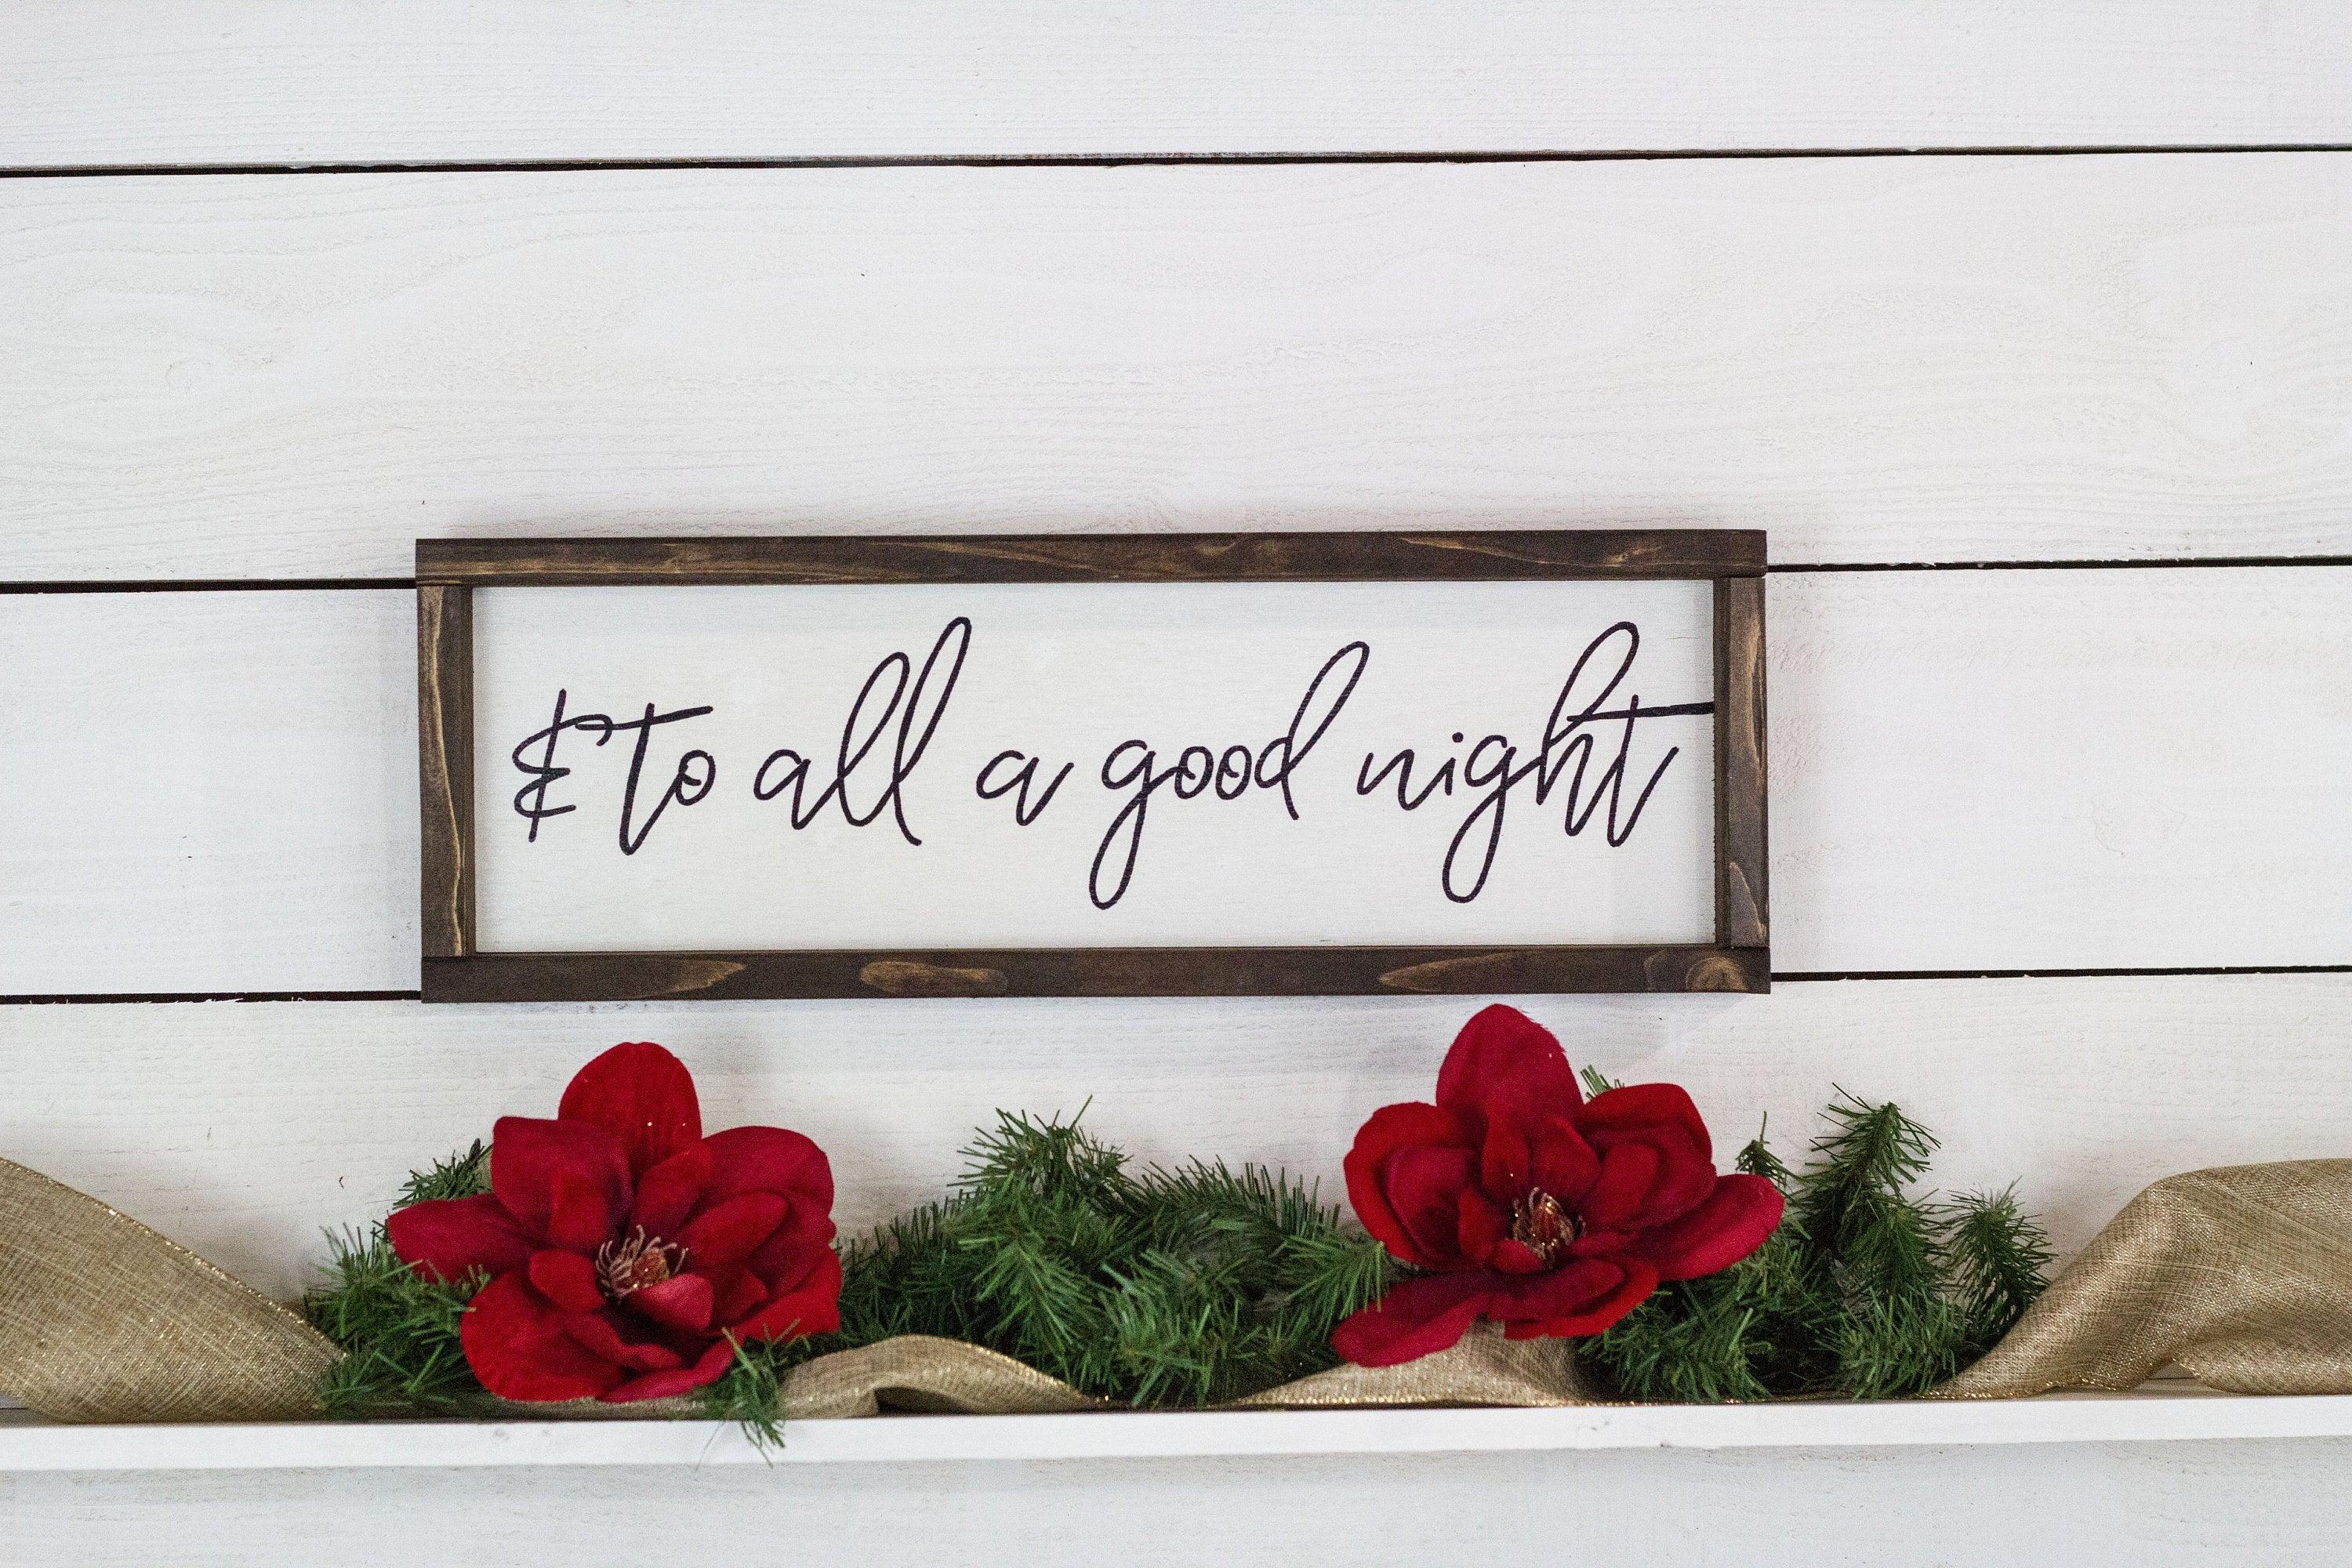 & to all a good night